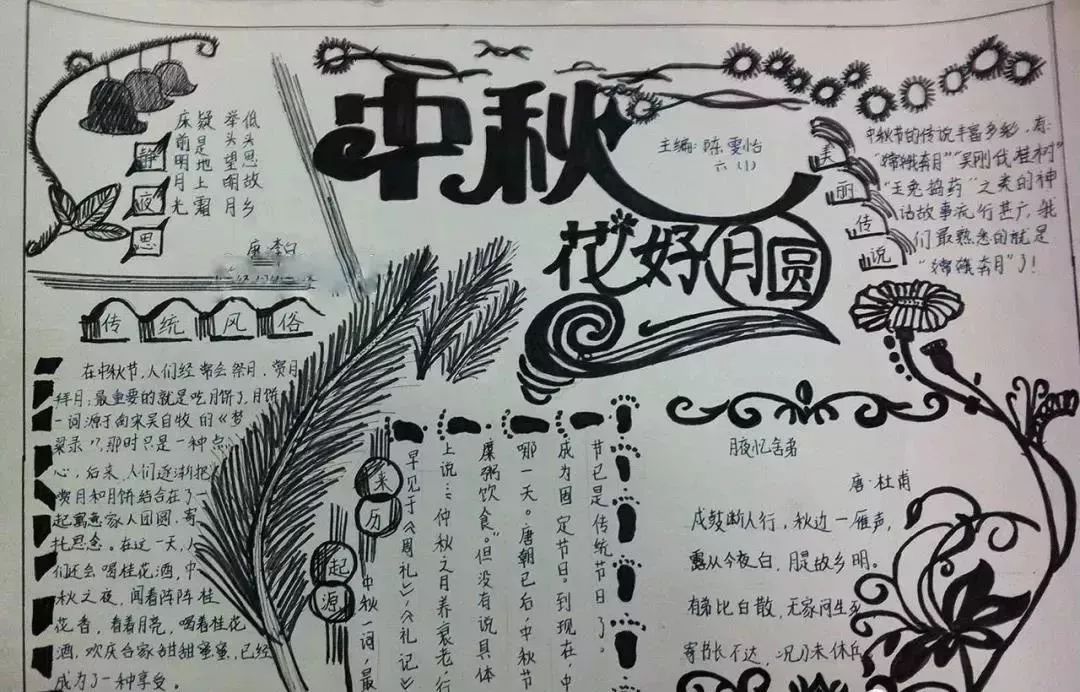 静夜思
床前明月光
疑是地上霜
举头望明月
低头思故乡
唐·李白
中秋
主编:陈雯怡
六(1)
花好月圆
美丽传说
中秋节的传说丰富多彩,有:
“嫦娥奔月”“吴刚伐桂树”
“玉兔捣药”之类的神
话故事流行甚广,我
们最熟悉的就是
“嫦娥奔月”了!
传统风俗
在中秋节,人们经常会祭月,赏月
拜月;最重要的就是吃月饼了,月饼
一词源于南宋吴自牧的《梦
粱录》,那时只是一种点
心,后来,人们逐渐把
赏月和月饼结合在了一
起寓意家人团圆,寄
托思念。在这一天,人
们还会喝桂花酒,中
秋之夜,闻着阵阵桂
花香,看着月亮,喝着桂花
酒,欢庆合家甜甜蜜蜜,已经
成为了一种享受。
来历
起源
中秋一词,最
早见于《周礼》,《礼记》
上说:“仲秋之月养衰老,行
糜粥饮食。”但没有说具体
哪一天。唐朝已后,中秋节
成为固定节日。到现在,中
节已是传统节日了。
月夜忆舍弟
唐·杜甫
戍鼓断人行,秋边一雁声,
露从今夜白,月是故乡明。
有弟皆散,无家问生死
寄书长不达,况乃未休兵